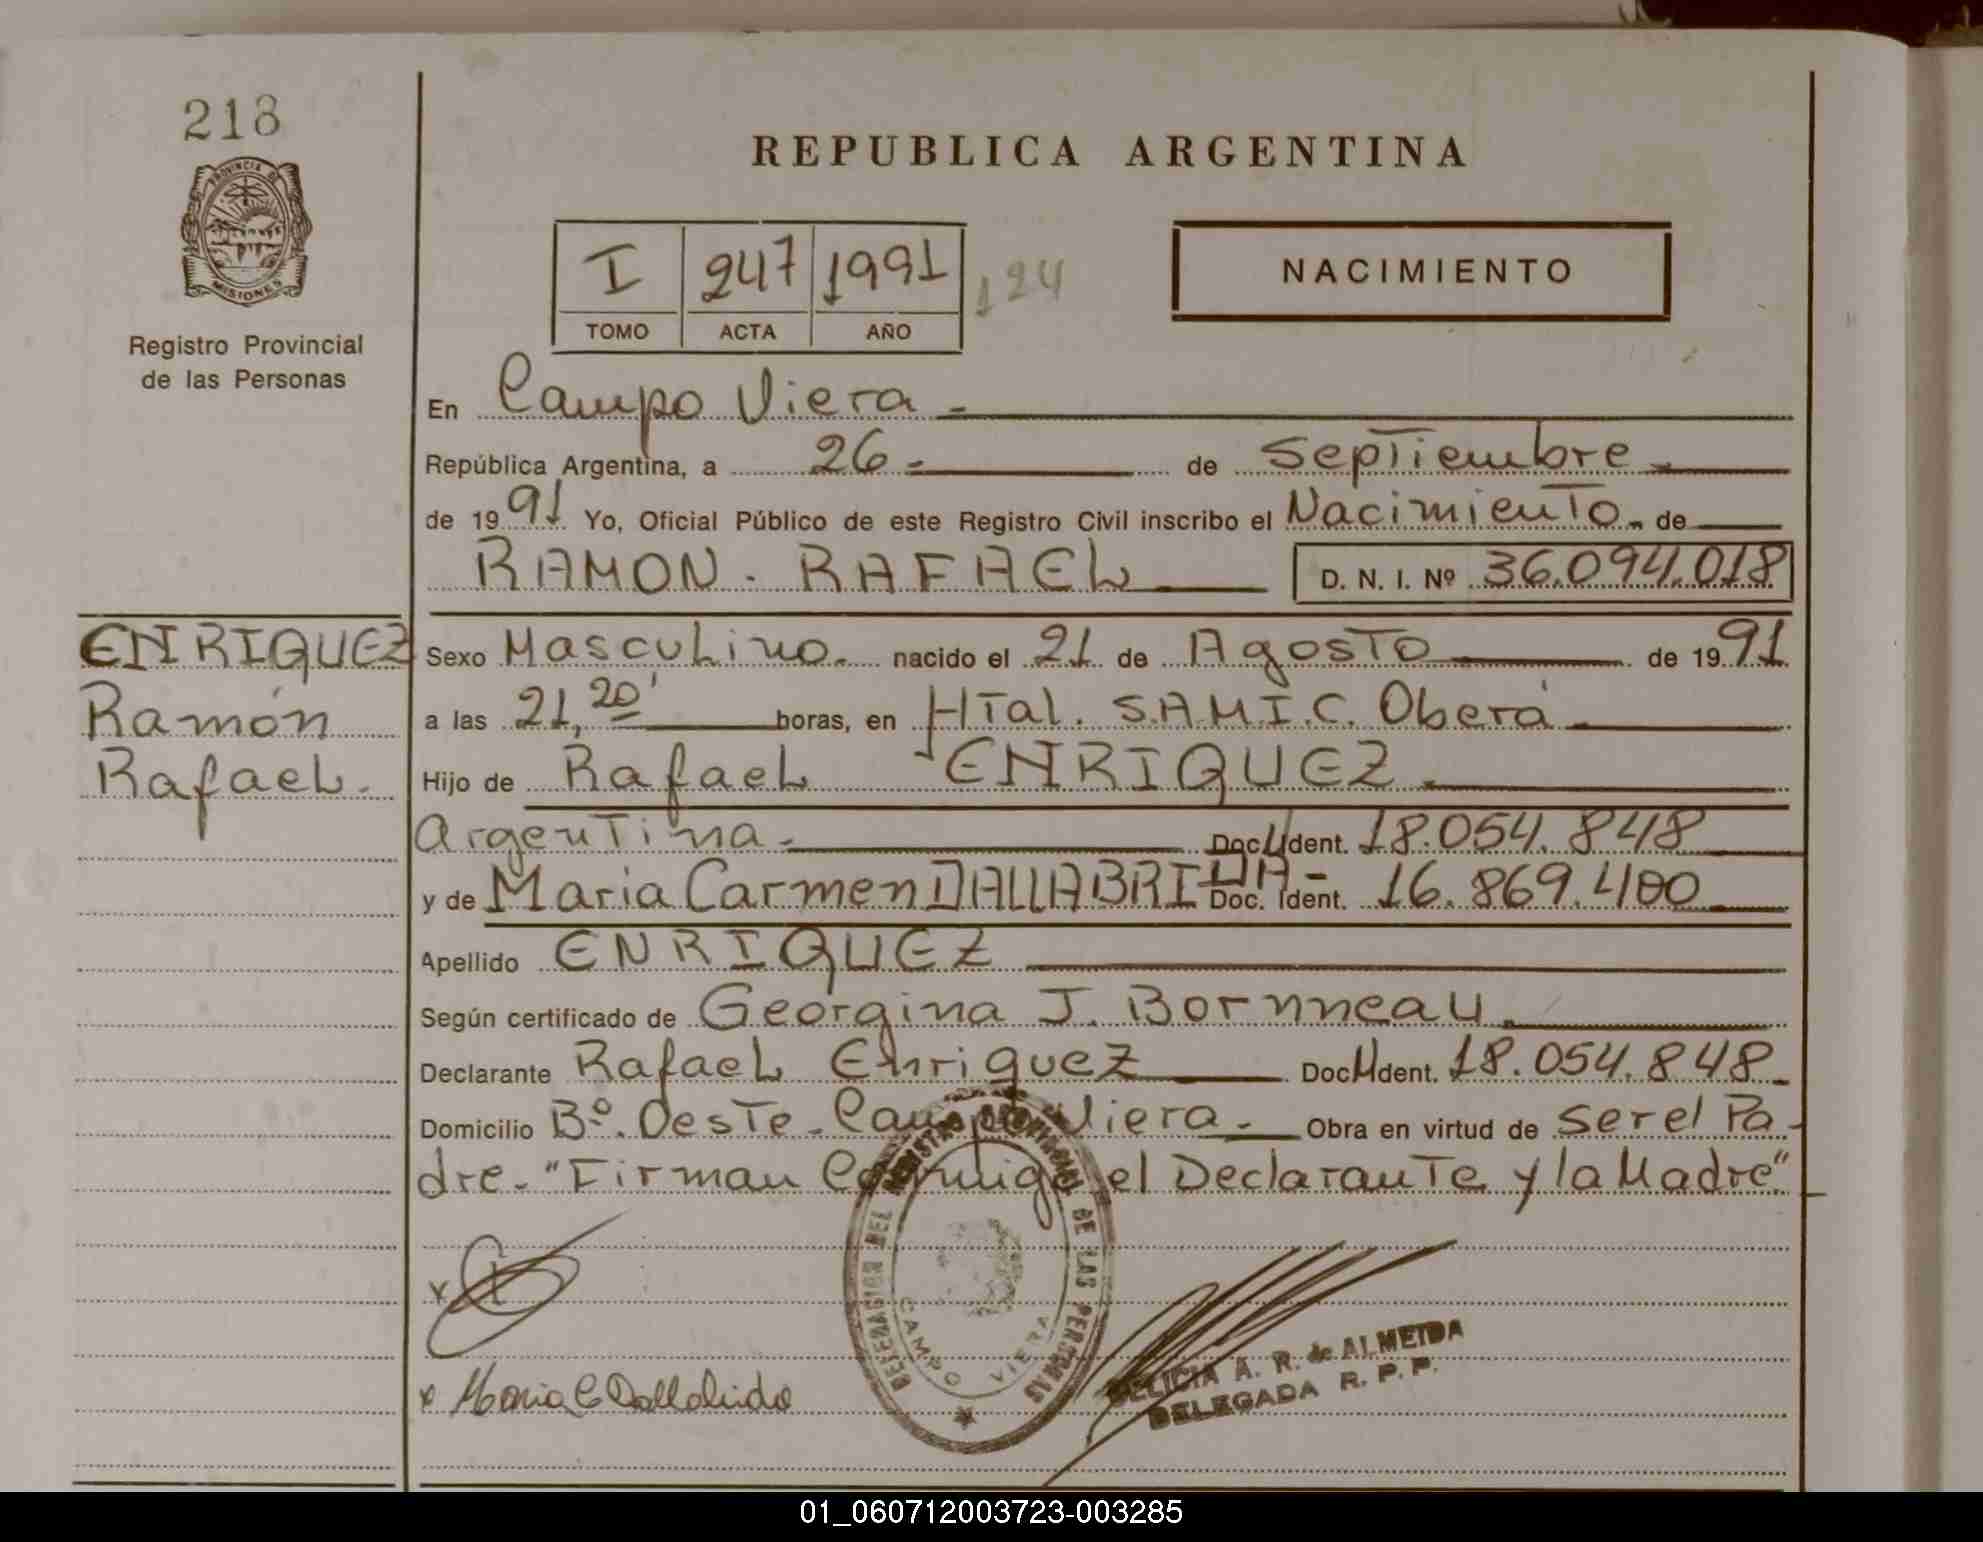 218
PROVINCIA DE
MISIONES
Registro Provincial
de las Personas
REPUBLICA ARGENTINA
I 247 1991 124
TOMO ACTA AÑO
NACIMIENTO
En Campo Viera -
República Argentina, a 26 - de Septiembre -
de 19 91 Yo, Oficial Público de este Registro Civil inscribo el Nacimiento - de
RAMON - RAFAEL D. N. I. Nº 36.094.018
ENRIQUEZ
Ramón
Rafael -
Sexo Masculino - nacido el 21 de Agosto de 19 91
a las 21,20' horas, en Htal. S.A.M.I.C. Oberá -
Hijo de Rafael ENRIQUEZ -
Argentina - Doc. Ident. 18.054.848
y de Maria Carmen DALLABRIDA - Doc. Ident. 16.869.400
Apellido ENRIQUEZ
Según certificado de Georgina J. Bornneau
Declarante Rafael Enriquez Doc. Ident. 18.054.848 -
Domicilio Bº. Oeste - Campo Viera - Obra en virtud de ser el Pa-
dre - "Firman Conmigo el Declarante y la Madre"
x
x Maria C Dallabrida
DELEGACION DEL REGISTRO PROVINCIAL DE LAS PERSONAS
CAMPO VIERA
DELICIA A. R. de ALMEIDA
DELEGADA R. P. P.
01_060712003723-003285